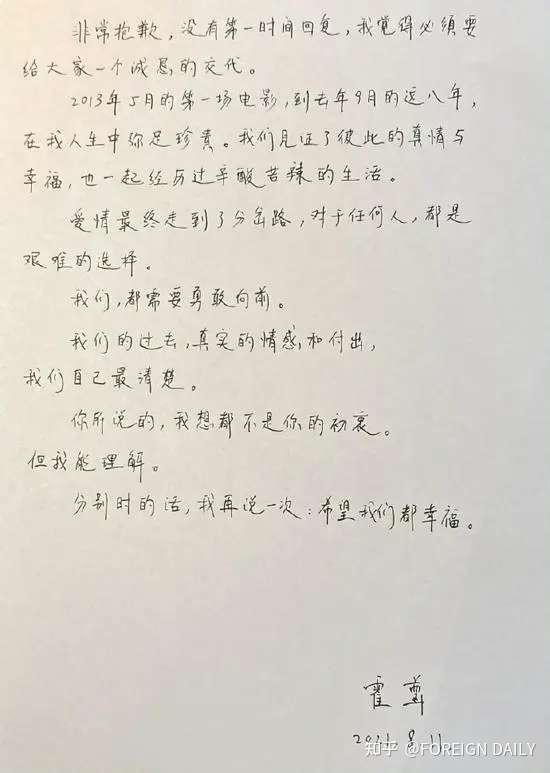 非常抱歉，没有第一时间回复，我觉得必须要
给大家一个诚恳的交代。
2013年5月的第一场电影，到去年9月的这八年，
在我人生中弥足珍贵。我们见证了彼此的真情与
幸福，也一起经历过辛酸苦辣的生活。
爱情最终走到了分岔路，对于任何人，都是
艰难的选择。
我们，都需要勇敢向前。
我们的过去，真实的情感，和付出，
我们自己最清楚。
你所说的，我想都不是你的初衷。
但我能理解。
分别时的话，我再说一次：希望我们都幸福。
霍尊
2021 8.11
知乎 @FOREIGN DAILY